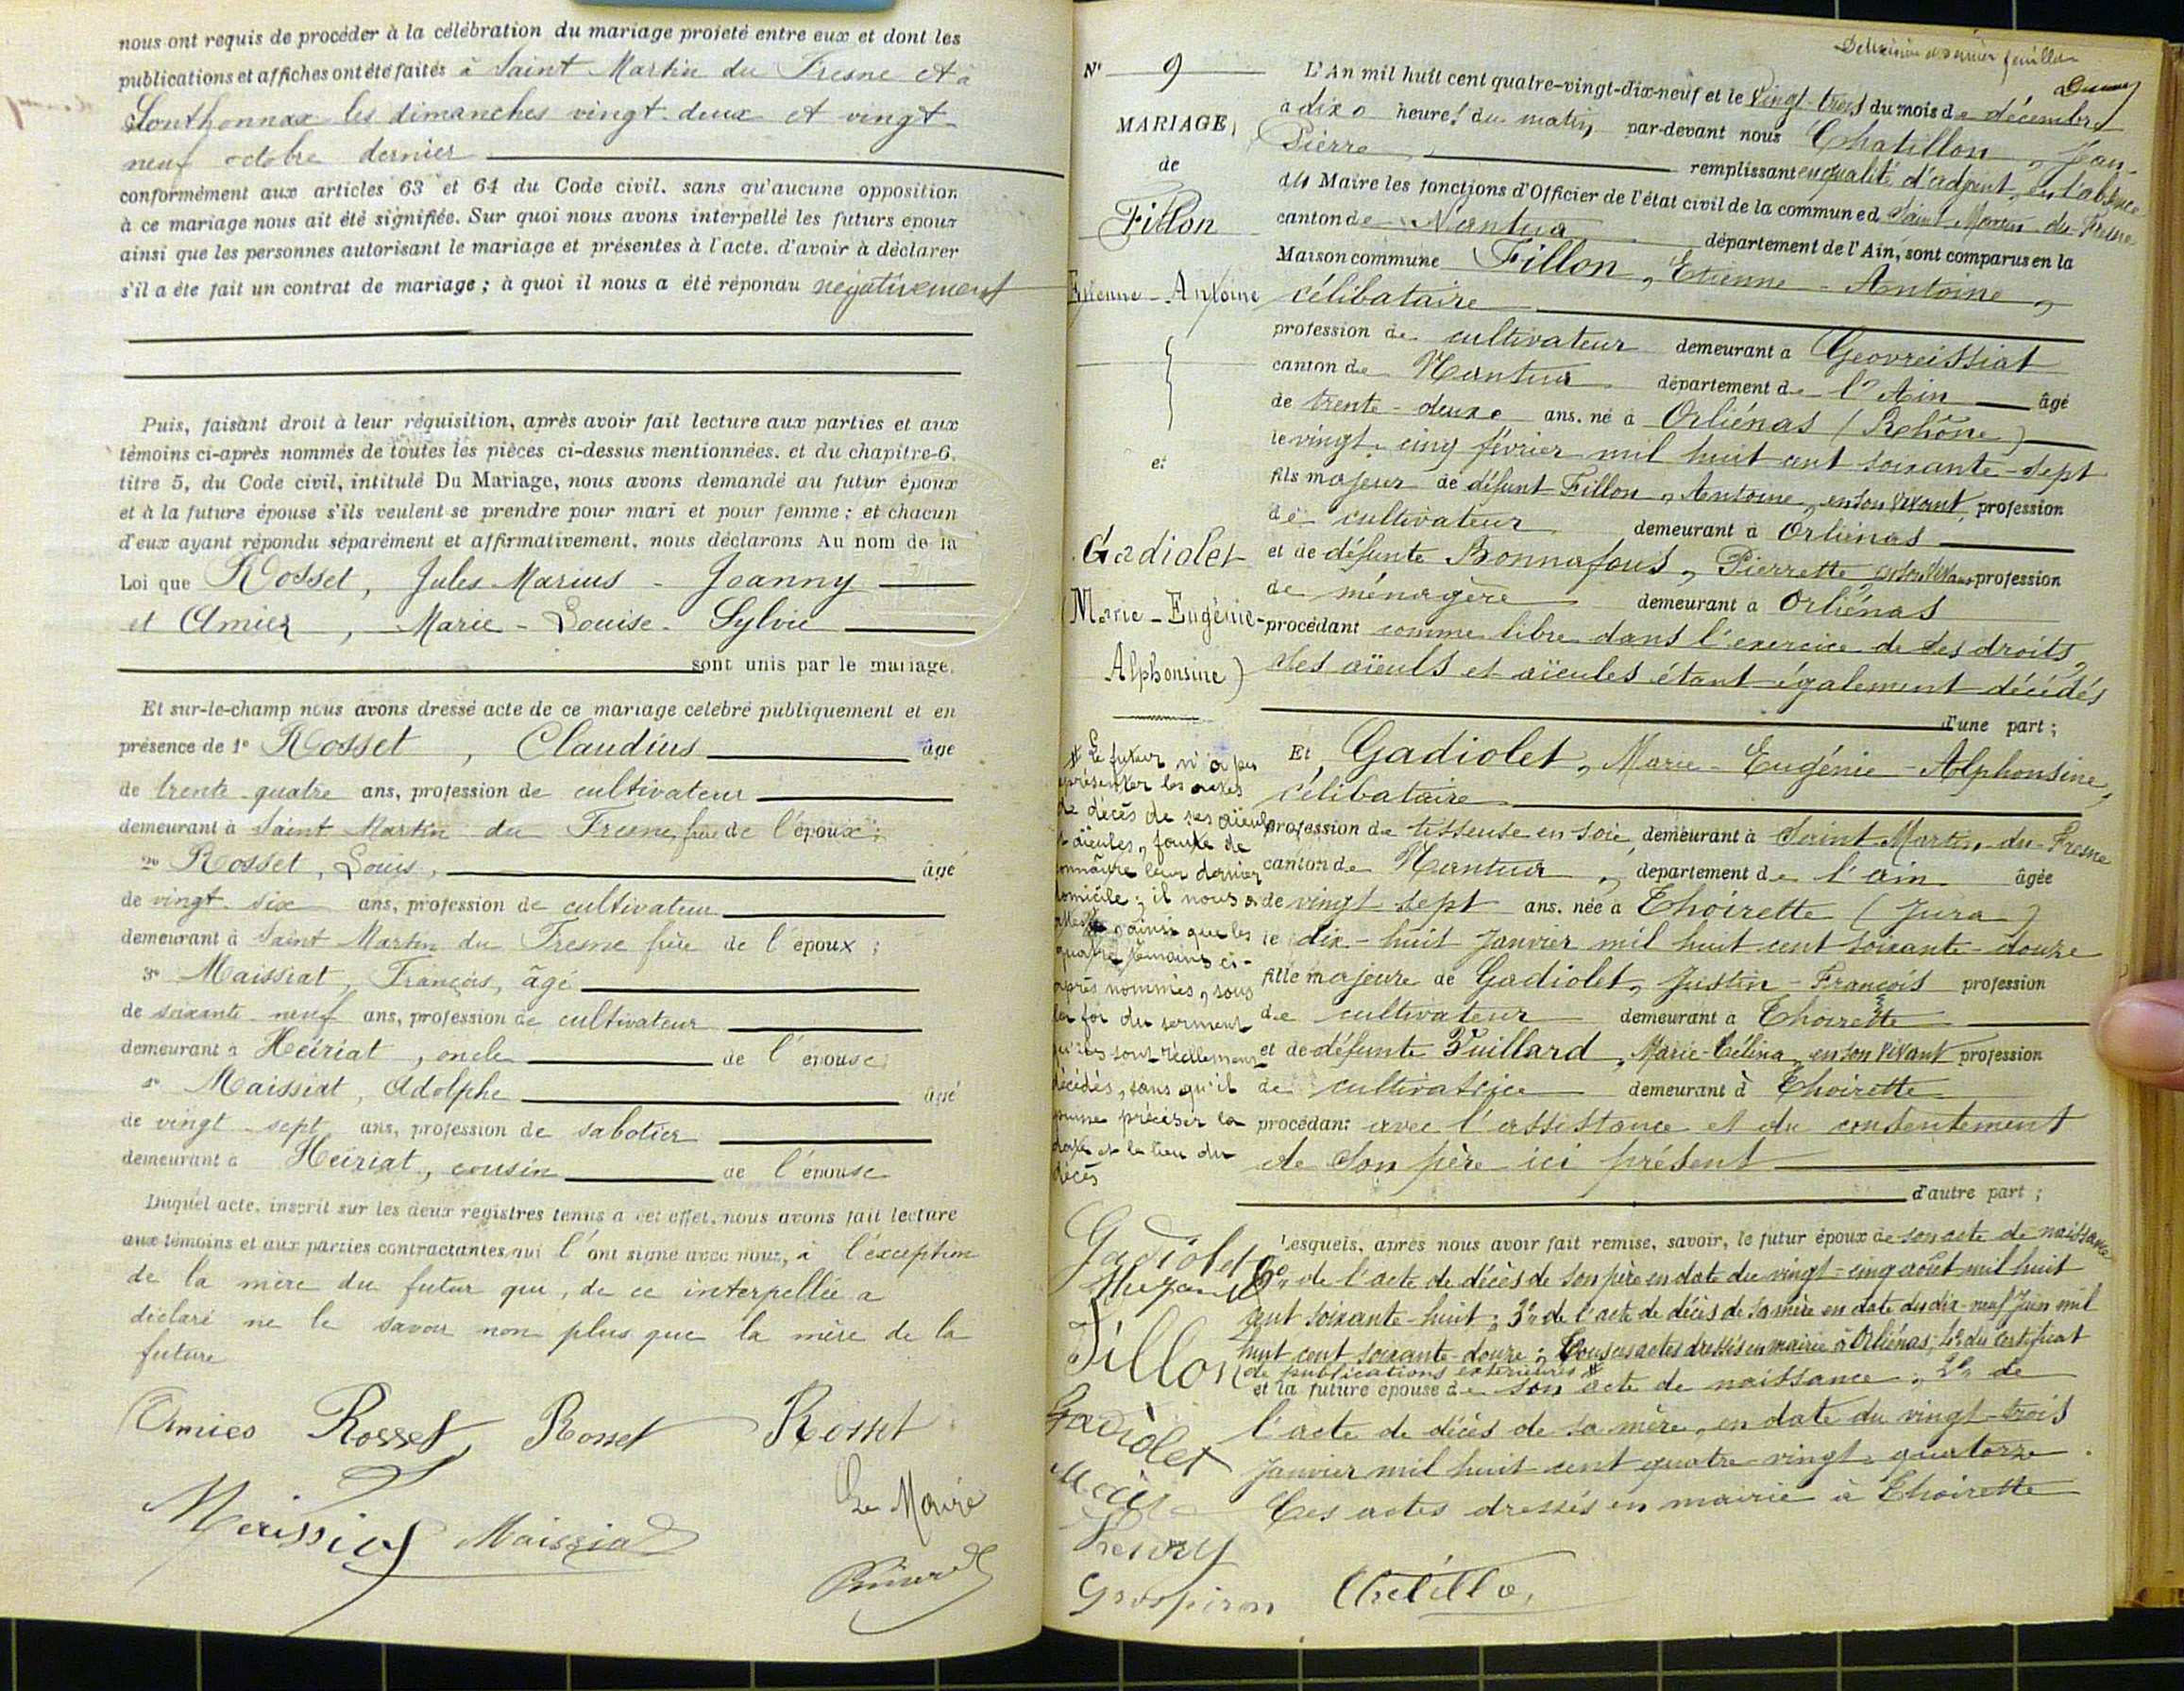 nous ont requis de procéder à la célébration du mariage projeté entre eux et dont les
publications et affiches ont été faites à Saint Martin du Fresne et à
Sonthonnax les dimanches vingt-deux et vingt-
neuf octobre dernier
conformément aux articles 63 et 64 du Code civil. sans qu'aucune opposition
à ce mariage nous ait été signifiée. Sur quoi nous avons interpellé les futurs époux
ainsi que les personnes autorisant le mariage et présentes à l'acte. d'avoir à déclarer
s'il a été fait un contrat de mariage ; à quoi il nous a été répondu négativement
Puis, faisant droit à leur réquisition, après avoir fait lecture aux parties et aux
témoins ci-après nommés de toutes les pièces ci-dessus mentionnées. et du chapitre 6.
titre 5, du Code civil, intitulé Du Mariage, nous avons demandé au futur époux
et à la future épouse s'ils veulent se prendre pour mari et pour femme ; et chacun
d'eux ayant répondu séparément et affirmativement, nous déclarons Au nom de la
Loi que Rosset, Jules-Marius-Joanny
et Amiez, Marie-Louise-Sylvie
sont unis par le mariage.
Et sur-le-champ nous avons dressé acte de ce mariage célébré publiquement et en
présence de 1° Rosset, Claudius âgé
de trente quatre ans, profession de cultivateur
demeurant à Saint Martin du Fresne, frère de l'époux ;
2° Rosset, Louis, âgé
de vingt six ans, profession de cultivateur
demeurant à Saint Martin du Fresne frère de l'époux ;
3° Maissiat, François, âgé
de soixante neuf ans, profession de cultivateur
demeurant à Heiriat, oncle de l'épouse
4° Maissiat, Adolphe âgé
de vingt-sept ans, profession de sabotier
demeurant à Heiriat, cousin de l'épouse
Duquel acte, inscrit sur les deux registres tenus à cet effet, nous avons fait lecture
aux témoins et aux parties contractantes qui l'ont signé avec nous, à l'exception
de la mère du futur qui, de ce interpellée a
déclaré ne le savoir non plus que la mère de la
future
Amiez Rosset Rosset Rosset
Maissiat Maissiat
Le Maire
N° 9
MARIAGE
de
Fillon
Etienne-Antoine
et
Gadiolet
(Marie-Eugénie-
Alphonsine)
# Le futur n'a pu
présenter les actes
de décès de ses aïeuls
et aïeules, faute de
connaître leur dernier
domicile ; il nous a
ainsi que les
quatre témoins ci-
après nommés, sous
la foi du serment
qu'ils sont réellement
décédés, sans qu'il
puisse préciser la
date et le lieu du
décès
feuillet
L'An mil huit cent quatre-vingt-dix-neuf et le vingt-trois du mois de décembre
à dix heures du matin, par-devant nous Chatillon, Jean-
Pierre, remplissant en qualité d'adjoint, en l'absence
du Maire les fonctions d'Officier de l'état civil de la commune de Saint Martin du Fresne
canton de Nantua département de l'Ain, sont comparus en la
Maison commune Fillon, Etienne-Antoine,
célibataire
profession de cultivateur demeurant à Geovreissiat
canton de Nantua département de l'Ain âgé
de trente-deux ans. né à Orliénas (Rhône)
le vingt-cinq février mil huit cent soixante-sept
fils majeur de défunt Fillon, Antoine, en son vivant, profession
de cultivateur demeurant à Orliénas
et de défunte Bonnafous, Pierrette en son vivant profession
de ménagère demeurant à Orliénas
procédant comme libre dans l'exercice de ses droits,
ses aïeuls et aïeules étant également décédés
d'une part ;
Et Gadiolet, Marie-Eugénie-Alphonsine,
célibataire
profession de tisseuse en soie, demeurant à Saint Martin-du-Fresne
canton de Nantua, département de l'ain âgée
de vingt sept ans. née à Thoirette (Jura)
le dix-huit Janvier mil huit cent soixante-douze
fille majeure de Gadiolet, Justin-François profession
de cultivateur demeurant à Thoirette
et de défunte Vuillard, Marie-Célina, en son vivant profession
de cultivatrice demeurant à Thoirette
procédant avec l'assistance et du consentement
de son père ici présent
d'autre part ;
lesquels, après nous avoir fait remise, savoir, le futur époux de son acte de naissance
2° de l'acte de décès de son père en date du vingt-cinq août mil huit
cent soixante-huit ; 3° de l'acte de décès de sa mère en date du dix-neuf Juin mil
huit cent soixante-douze ; Tous ces actes dressés en mairie à Orliénas ; 4° du certificat
de publications extérieures #
et la future épouse de son acte de naissance, 2° de
l'acte de décès de sa mère, en date du vingt-trois
Janvier mil huit cent quatre vingt-quatorze.
Ces actes dressés en mairie à Thoirette
Gadiolet
Fillon
Gadiolet
Grospiron